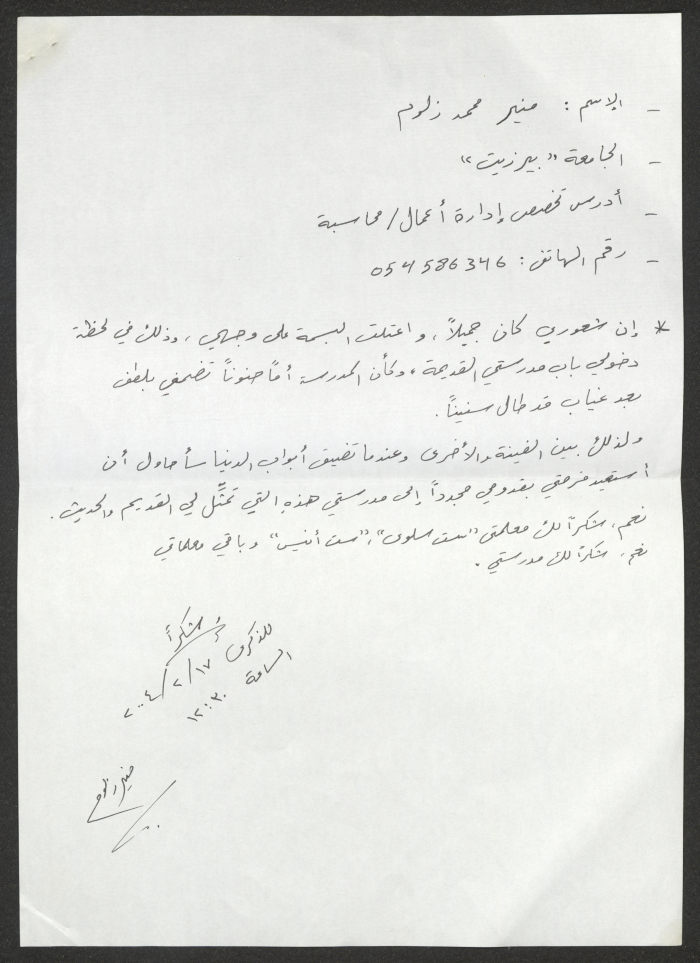 - الإسم : منير محمد زلوم
- الجامعة "بيرزيت"
- أدرس تخصص إدارة أعمال/محاسبة
- رقم الهاتف : 054 586346
* إن شعوري كان جميلاً، و اعتلت البسمة على وجهي، وذلك في لحظة
دخولي باب مدرستي القديمة، وكأن المدرسة أماً حنوناً تضمني بلطف
بعد غياب قد طال سنيناً.
ولذلك بين الفينة والأخرى وعندما تضيق أبواب الدنيا سأحاول أن
أستعيد فرحتي بقدومي مجدداً إلى مدرستي هذه التي تمثِّل لي القديم والحديث.
نعم، شكراً لك معلمتي "ست سلوى"، "ست أنيس" و باقي معلماتي
نعم، شكراً لك مدرستي.
شكراً
للذكرى ١٧/٢/٢٠٠٤
الساعة ١٢:٣٠
منير زلوم